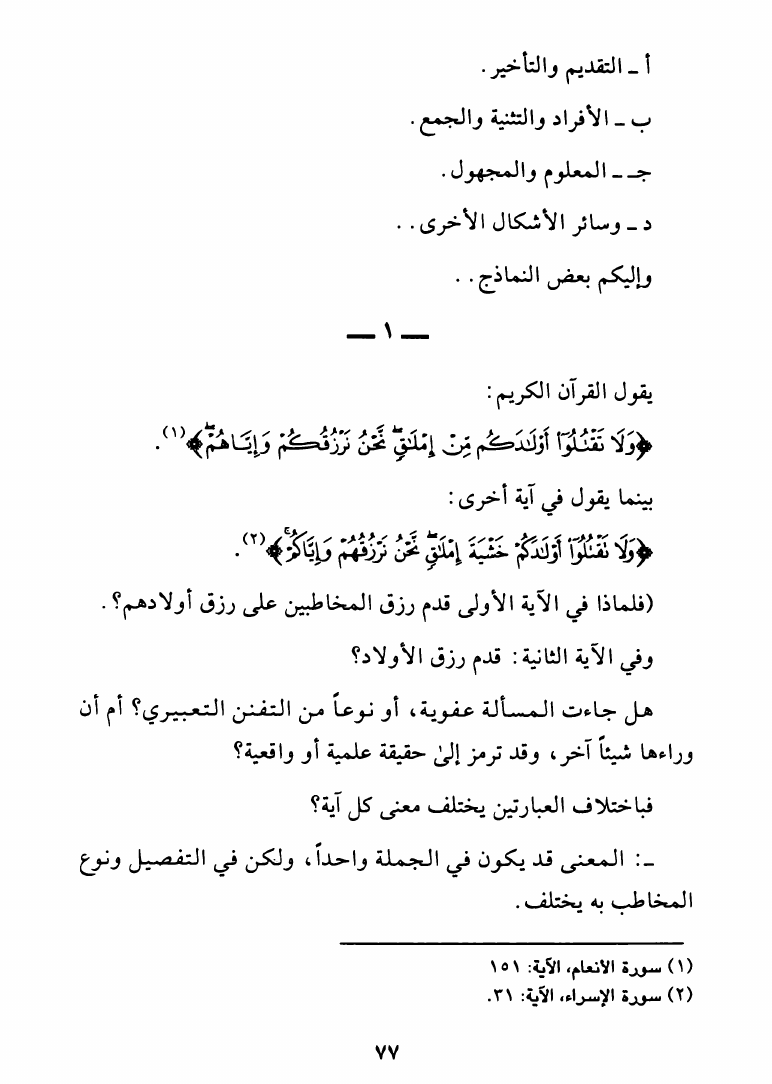 أ ـ التقديم والتأخير.
ب ـ الأفراد والتثنية والجمع.
جـ ـ المعلوم والمجهول.
د ـ وسائر الأشكال الأخرى . .
وإليكم بعض النماذج . .
ـــ ١ ـــ
يقول القرآن الكريم:
﴿وَلَا تَقْتُلُوٓا۟ أَوْلَـٰدَكُم مِّنْ إِمْلَـٰقٍۖ نَّحْنُ نَرْزُقُكُمْ وَإِيَّاهُمْۖ﴾(١).
بينما يقول في آية أخرى:
﴿وَلَا تَقْتُلُوٓا۟ أَوْلَـٰدَكُمْ خَشْيَةَ إِمْلَـٰقٍۖ نَّحْنُ نَرْزُقُهُمْ وَإِيَّاكُمْۚ﴾(٢).
(فلماذا في الآية الأولى قدم رزق المخاطبين على رزق أولادهم؟.
وفي الآية الثانية: قدم رزق الأولاد؟
هل جاءت المسألة عفوية، أو نوعاً من التفنن التعبيري؟ أم أن
وراءها شيئاً آخر، وقد ترمز إلىٰ حقيقة علمية أو واقعية؟
فباختلاف العبارتين يختلف معنى كل آية؟
ـ: المعنى قد يكون في الجملة واحداً، ولكن في التفصيل ونوع
المخاطب به يختلف.
(١) سورة الأنعام، الآية: ١٥١
(٢) سورة الإسراء، الآية: ٣١.
٧٧